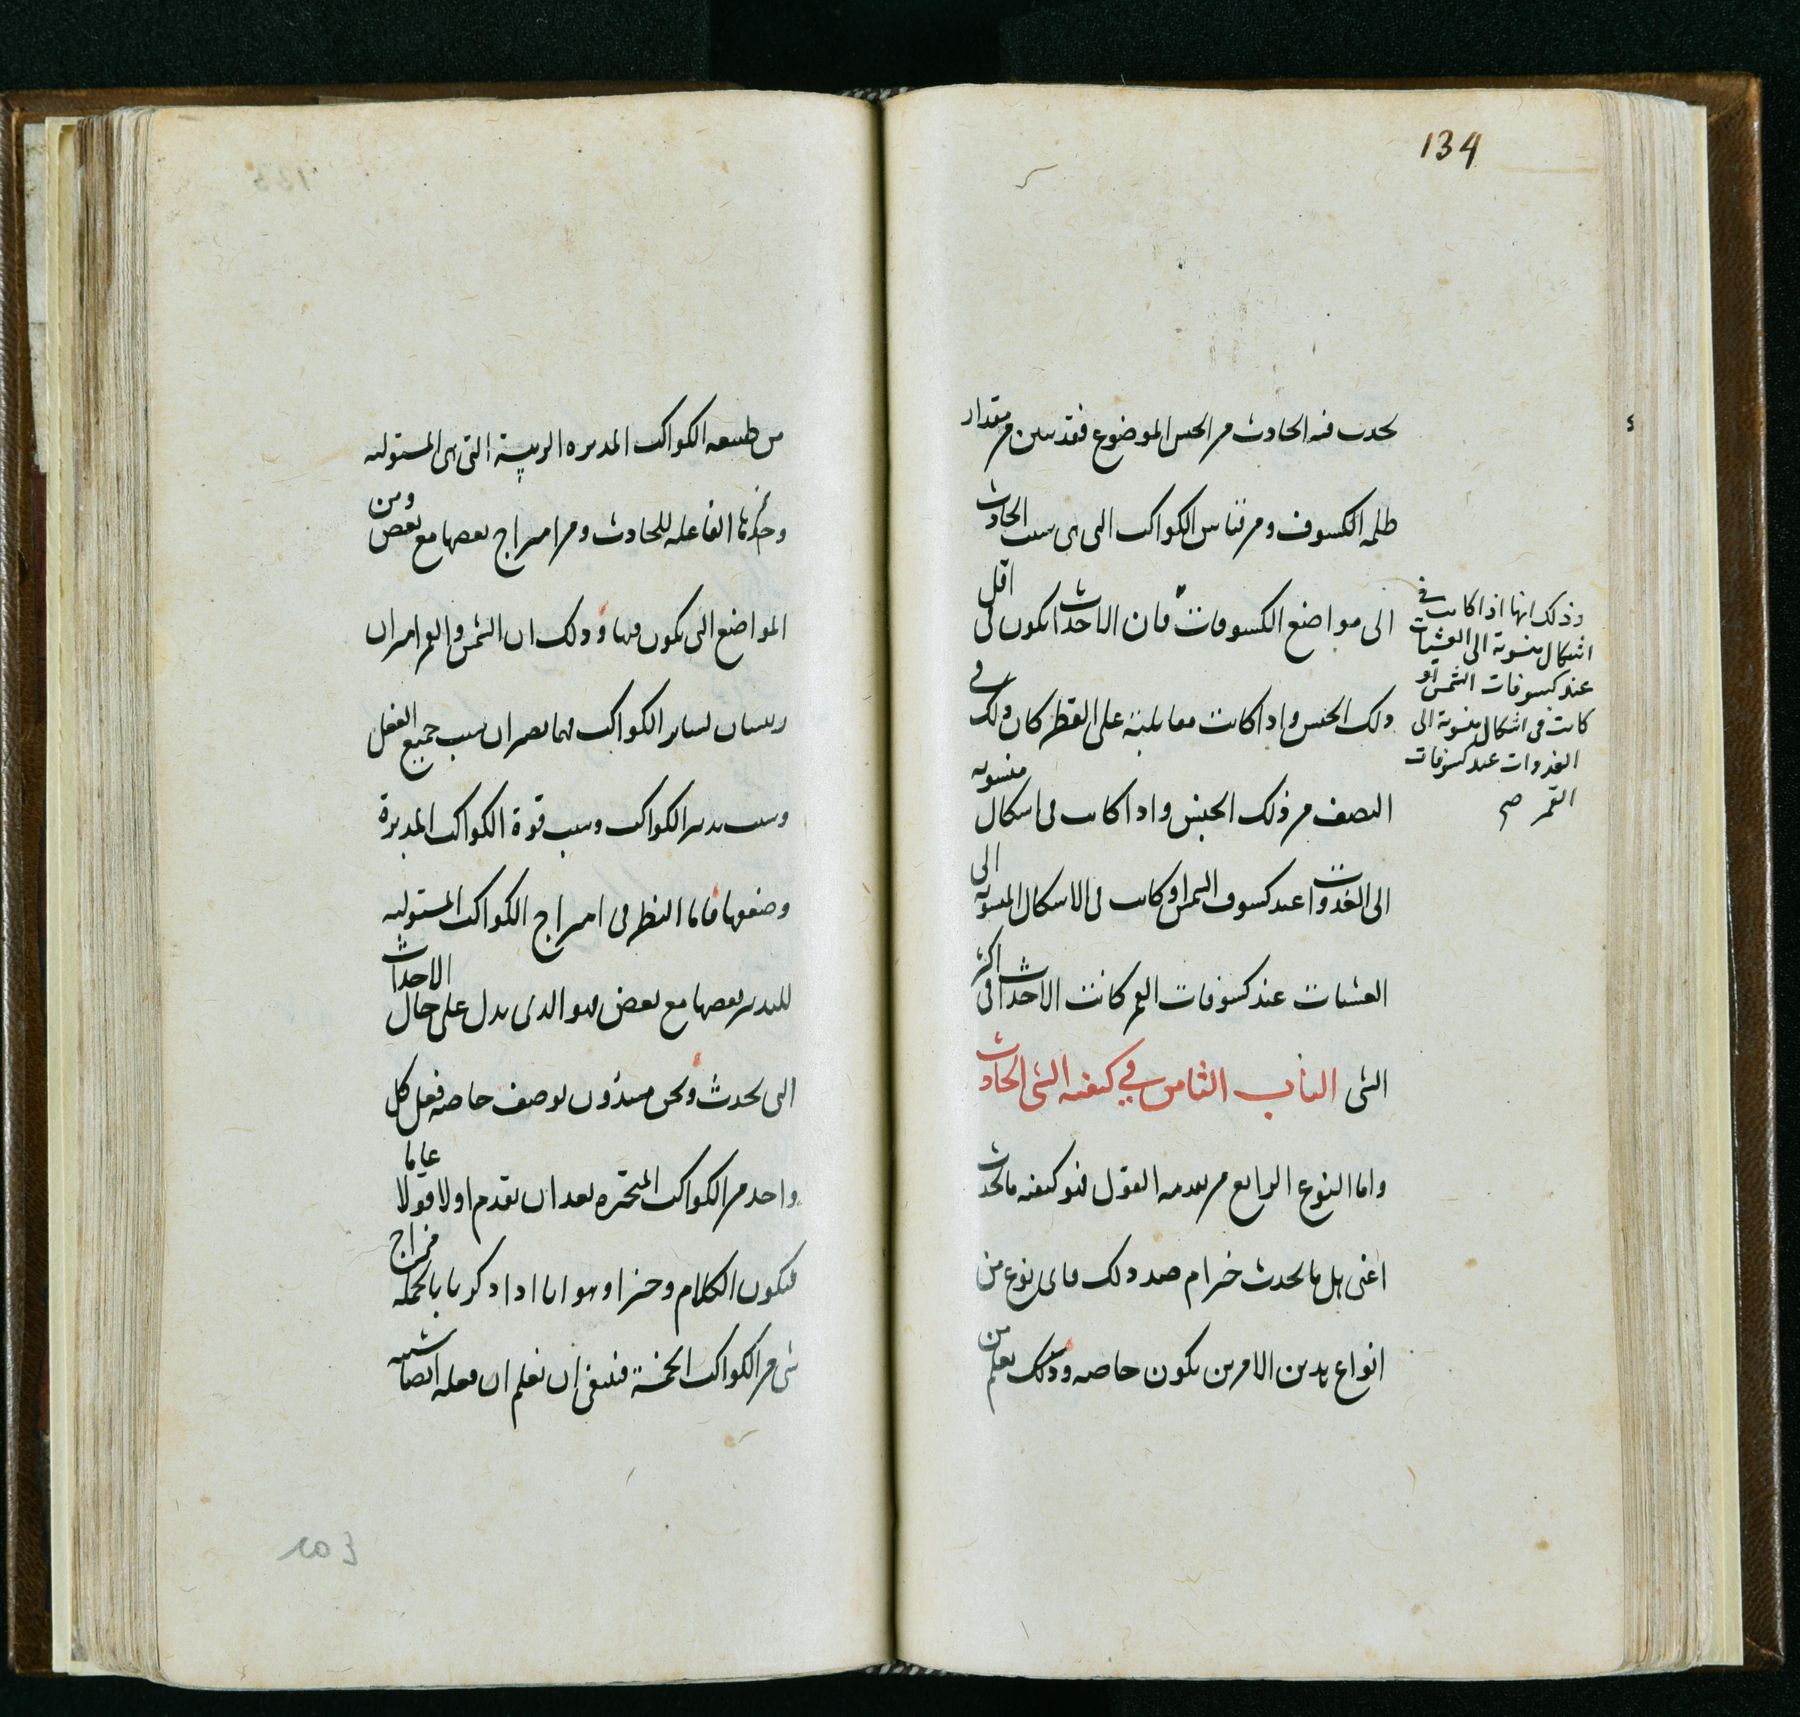 134
يحدث فيه الحادث من الجنس الموضوع فقد يتبين من مقدار
ظلمة الكسوف ومن قياس الكواكب التي هي سبب الحادث
الى مواضع الكسوفات فان الاحداث تكون في اقل
ذلك الجنس واذا كانت مقابلته على القطر كان ذلك في
النصف من ذلك الجنس واذا كانت في اشكال منسوبة
الى الغدوات عند كسوف الشمس او كانت في الاشكال المنسوبة الى
العشيات عند كسوفات القمر كانت الاحداث في اكثر
الشي الباب الثامن في كيفية الشي الحادث
واما النوع الرابع من تقدمة القول فهو كيفية ما يحدث
اعني هل ما يحدث خير ام ضد ذلك فاي نوع من
انواع هذين الامرين يكون خاصة وذلك يعلم من
وذلك انها اذا كانت في
اشكال منسوبة الى العشيات
عند كسوفات الشمس او
كانت في اشكال منسوبة الى
الغدوات عند كسوفات
القمر صح
من طبيعة الكواكب المدبرة الرئيسة التي هي المستولية
الفاعلة للحادث ومن امتزاج بعضها مع بعض ومن
المواضع التي تكون فيها وذلك ان الشمس والقمر امران
رئيسان لساير الكواكب فهما يصيران سبب جميع الفعل
وسبب تدبير الكواكب وسبب قوة الكواكب المدبرة
وضعفها فاما النظر في امتزاج الكواكب المستولية
للتدبير بعضها مع بعض فهو الذي يدل على حال الاحداث
التي تحدث ونحن مبتدؤن بوصف خاصة فعل كل
واحد من الكواكب المتحيرة بعد ان نقدم اولا قولا عاما
فيكون الكلام وجيزا وهو انا اذا ذكرنا بالجملة مزاج
شي من الكواكب الخمسة فينبغي ان نعلم ان فعله ايضا شبيه
103